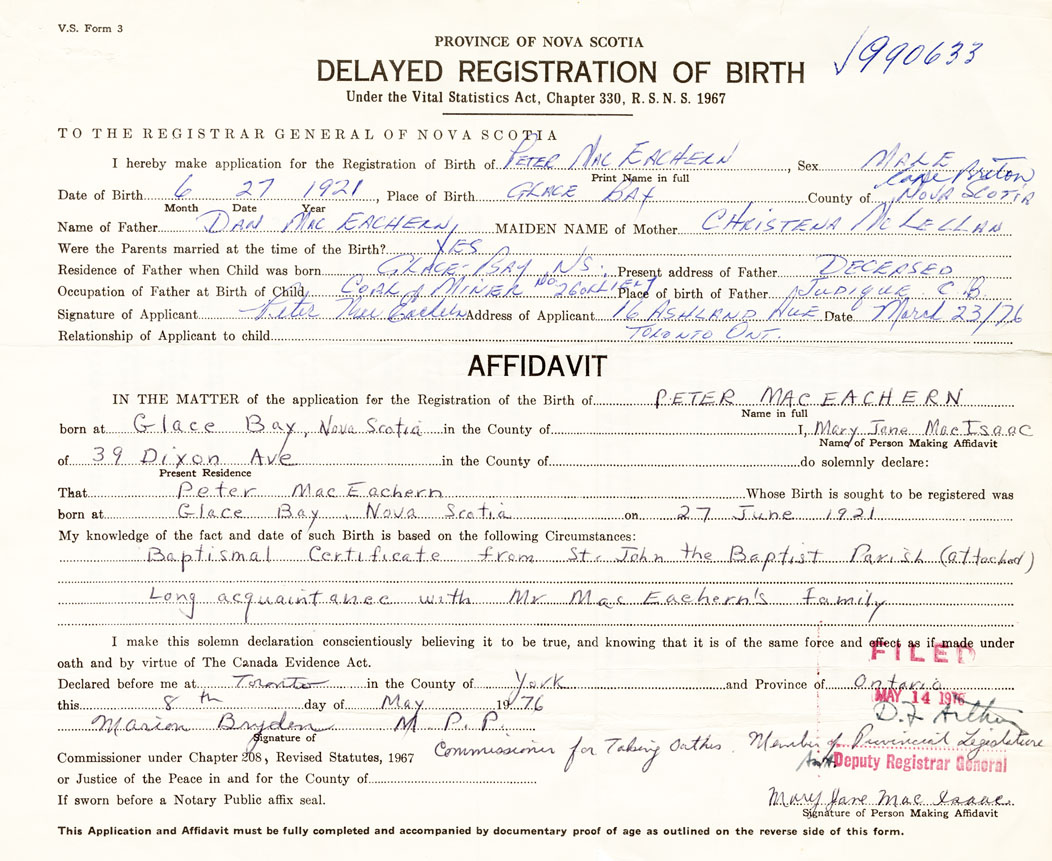 V.S. Form 3
PROVINCE OF NOVA SCOTIA
√990633
DELAYED REGISTRATION OF BIRTH
Under the Vital Statistics Act, Chapter 330, R. S. N. S. 1967
TO THE REGISTRAR GENERAL OF NOVA SCOTIA
I hereby make application for the Registration of Birth of PETER MAC EACHERN, Sex MALE
Print Name in full Cape Breton
Date of Birth 6 27 1921, Place of Birth GLACE BAY County of NOVA SCOTIA
Month Date Year
Name of Father DAN MAC EACHERN MAIDEN NAME of Mother CHRISTENA McLELLAN
Were the Parents married at the time of the Birth? YES
Residence of Father when Child was born GLACE BAY NS. Present address of Father DECEASED
Occupation of Father at Birth of Child COAL MINER NO 26 Place of birth of Father JUDIQUE C.B.
Signature of Applicant Peter Mac Eachern Address of Applicant 16 ASHLAND AVE Date March 23/76
Relationship of Applicant to child TORONTO ONT.
AFFIDAVIT
IN THE MATTER of the application for the Registration of the Birth of PETER MAC EACHERN
Name in full
born at Glace Bay, Nova Scotia in the County of I, Mary Jane MacIsaac
Name of Person Making Affidavit
of 39 Dixon Ave in the County of do solemnly declare:
Present Residence
That Peter MacEachern Whose Birth is sought to be registered was
born at Glace Bay, Nova Scotia on 27 June 1921
My knowledge of the fact and date of such Birth is based on the following Circumstances:
Baptismal Certificate from St. John the Baptist Parish (attached)
Long acquaintance with Mr MacEachern's family
I make this solemn declaration conscientiously believing it to be true, and knowing that it is of the same force and effect as if made under
FILED
oath and by virtue of The Canada Evidence Act.
Declared before me at Toronto in the County of York and Province of Ontario
MAY 14 1976
this 8th day of May 1976
D.F. Arthur
Marion Bryden M.P.P.
Signature of
Commissioner for Taking Oaths. Member of Provincial Legislature
Commissioner under Chapter 208, Revised Statutes, 1967
Deputy Registrar General
or Justice of the Peace in and for the County of
If sworn before a Notary Public affix seal.
Mary Jane Mac Isaac
Signature of Person Making Affidavit
This Application and Affidavit must be fully completed and accompanied by documentary proof of age as outlined on the reverse side of this form.